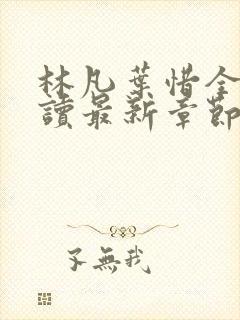 林凡葉惜全
讀最新章節
子無我